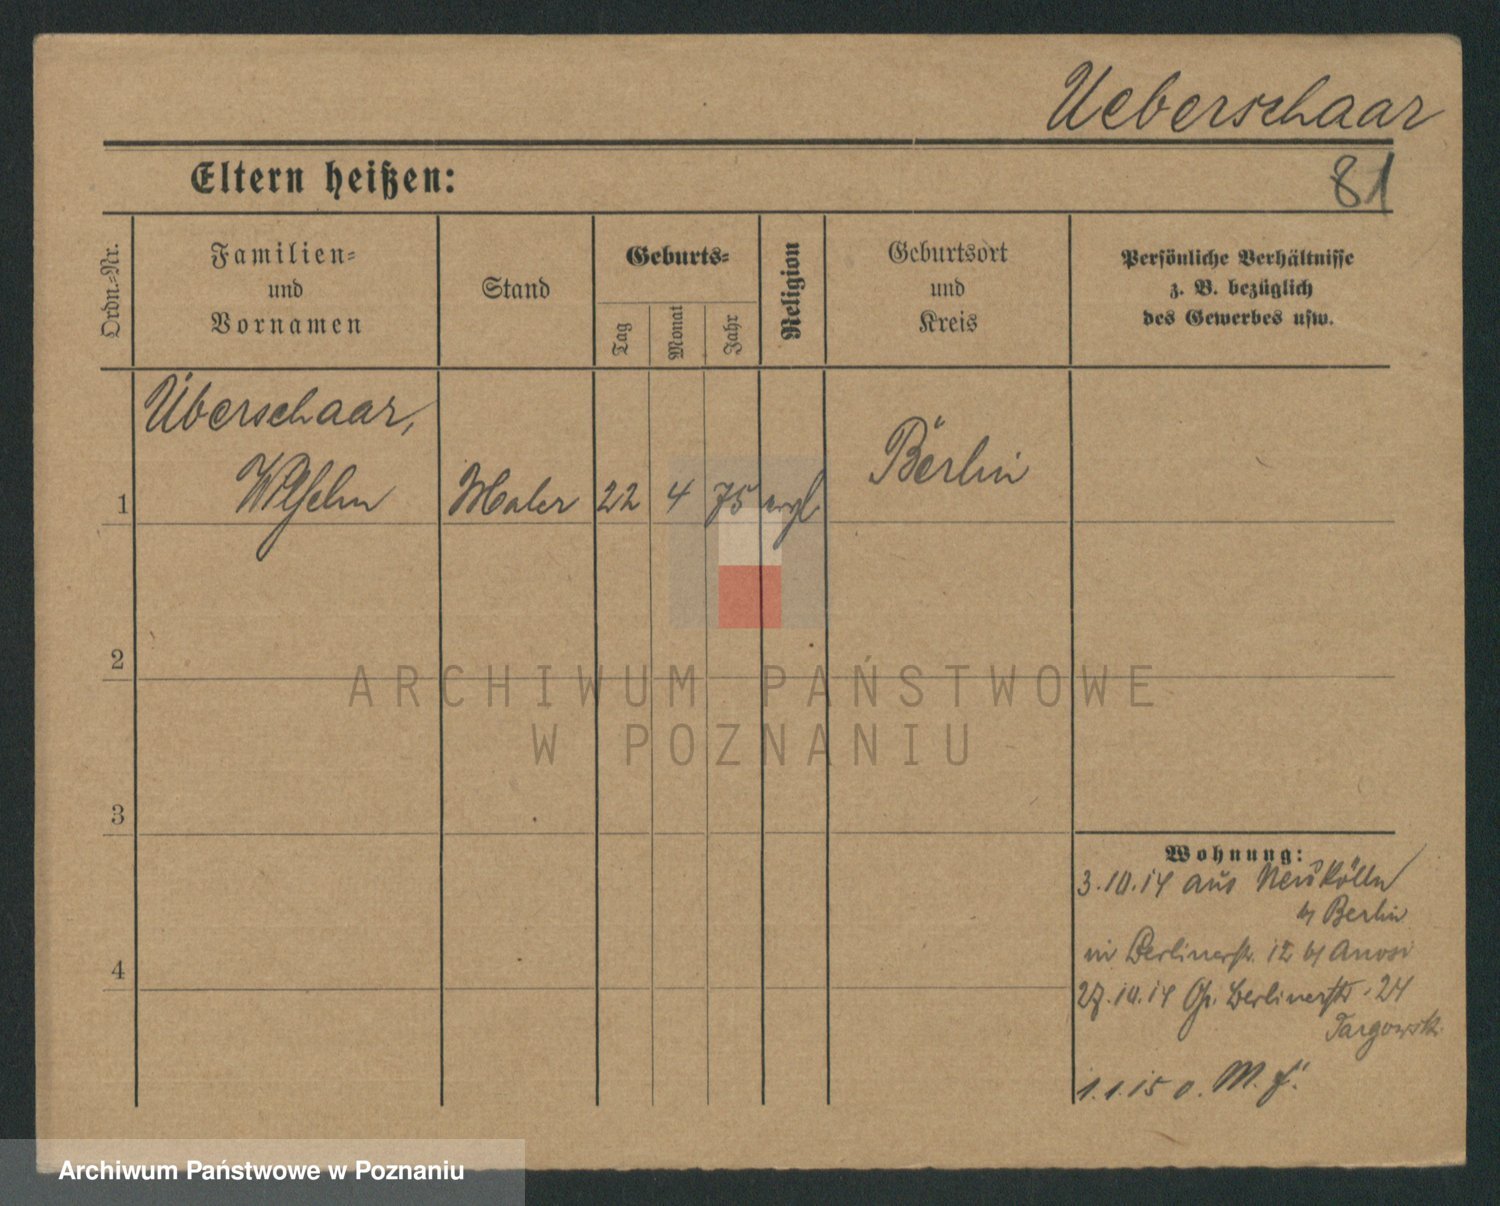 Ueberschaar
Eltern heißen:
81
Ordn.-Nr.
Familien-
und
Vornamen
Stand
Geburts-
Tag
Monat
Jahr
Religion
Geburtsort
und
Kreis
Persönliche Verhältnisse
z. B. bezüglich
des Gewerbes usw.
Überschaar,
1 Wilhelm Maler 22 4 75 evgl Berlin
2
ARCHIWUM PAŃSTWOWE
W POZNANIU
3
Wohnung:
3.10.14 aus Neukölln
b/ Berlin
in Berlinerstr. 12 b/
4
27.10.14 Gr. Berlinerstr. 24
Targowsk
1.1.15 o. M. f.
Archiwum Państwowe w Poznaniu